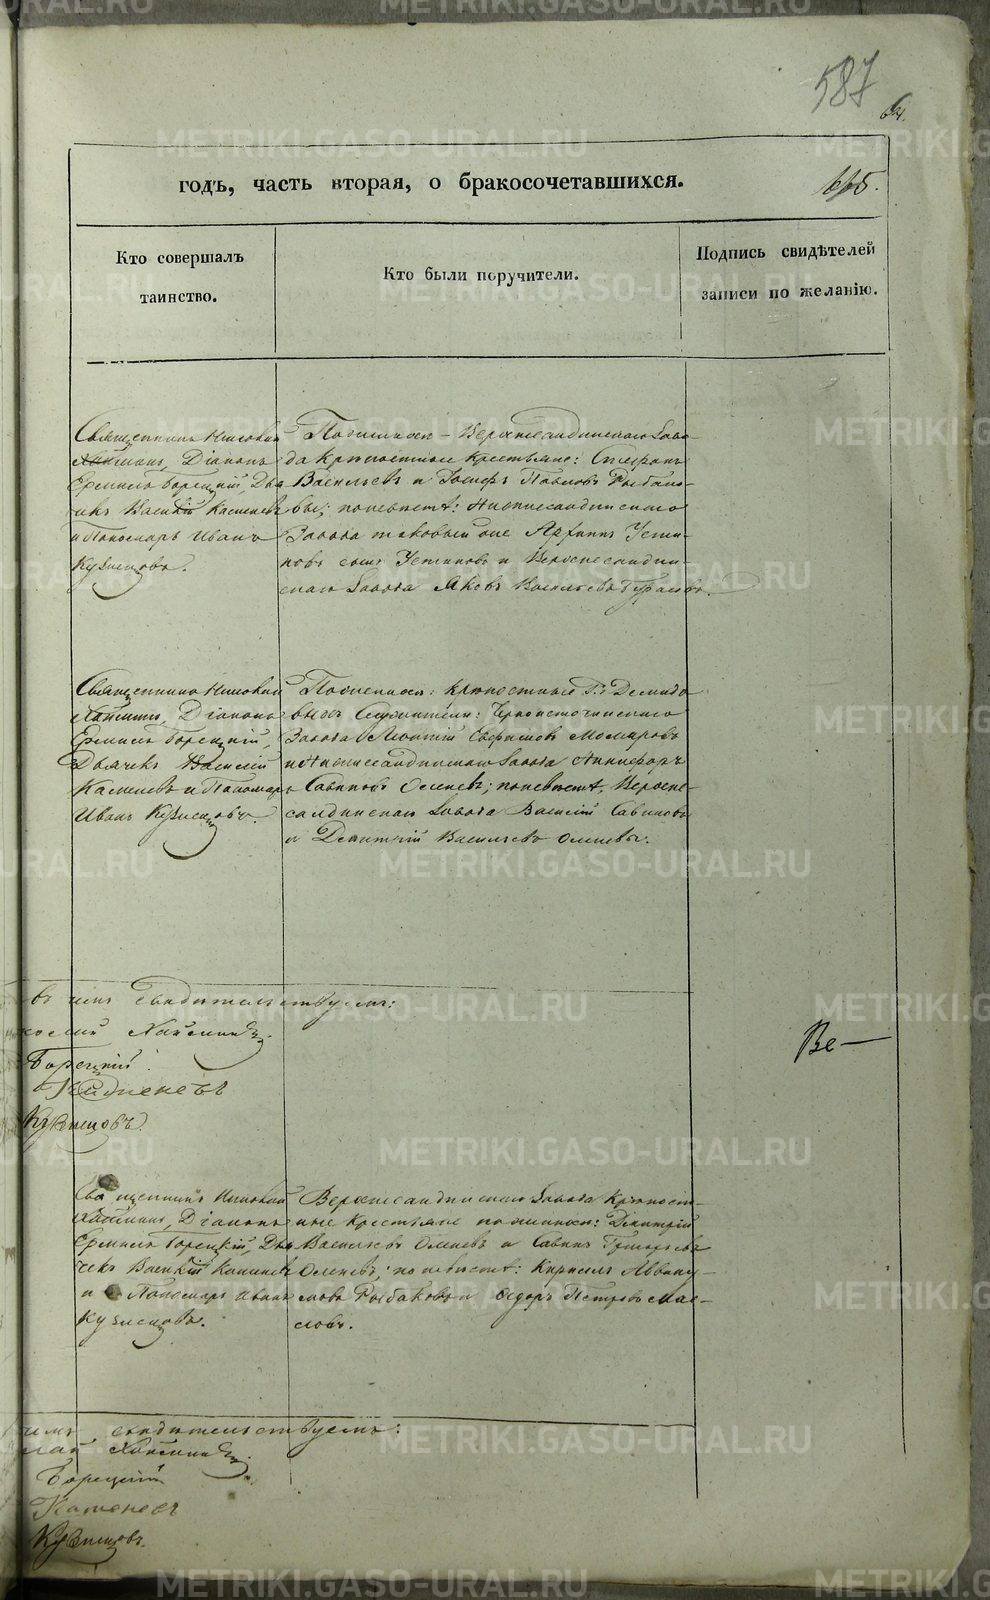 587
64.
годъ, часть вторая, о бракосочетавшихся.
Кто совершалъ
таинство.
Кто были поручители.
Подпись свидѣтелей
записи по желанію.
Священникъ Николай
Діаконъ
Ермилъ Борецкій, Дья
чекъ Василій Каменевъ
и Пономарь Иванъ
Кузнецовъ.
По женихѣ – Верхнесалдинскаго Заво-
да крѣпостные крестьяне: Стефанъ
Васильевъ и Іосифъ Павловъ Рыбако-
вы; по невѣстѣ: Нижнесалдинскаго
Завода таковый же Архипъ Усти-
новъ сынъ Устиновъ и Верхнесалдин-
скаго Завода Яковъ Васильевъ
Священникъ Николай
Діаконъ
Ермилъ Борецкій,
Дьячекъ Василій
Каменевъ и Пономарь
Иванъ Кузнецовъ.
По женихѣ: крѣпостные Г. Демидо
выхъ Служители: Черноисточинскаго
Завода
и Нижнесалдинскаго Завода Никифоръ
Савиновъ Оленевъ; по невѣстѣ, Верхне-
салдинскаго Завода Василій Савиновъ
и Димитрій Васильевъ Оленевы.
въ чемъ свидѣтельствуемъ:
Борецкій.
Каменевъ
Кузнецовъ.
Ве—
Священникъ Николай
Діаконъ
Ермилъ Борецкій, Дья
чекъ Василій Каменевъ
и Пономарь Иванъ
Кузнецовъ.
Верхнесалдинскаго Завода крѣпост-
ные крестьяне по женихѣ: Димитрій
Васильевъ Оленевъ и Савинъ Григорьевъ
Оленевъ; по невѣстѣ: Кириллъ Аввау-
мовъ Рыбаковъ и Ѳедоръ Петровъ Мас-
ловъ.
свидѣтельствуемъ:
Борецкій
Каменевъ
Кузнецовъ.
METRIKI.GASO-URAL.RU